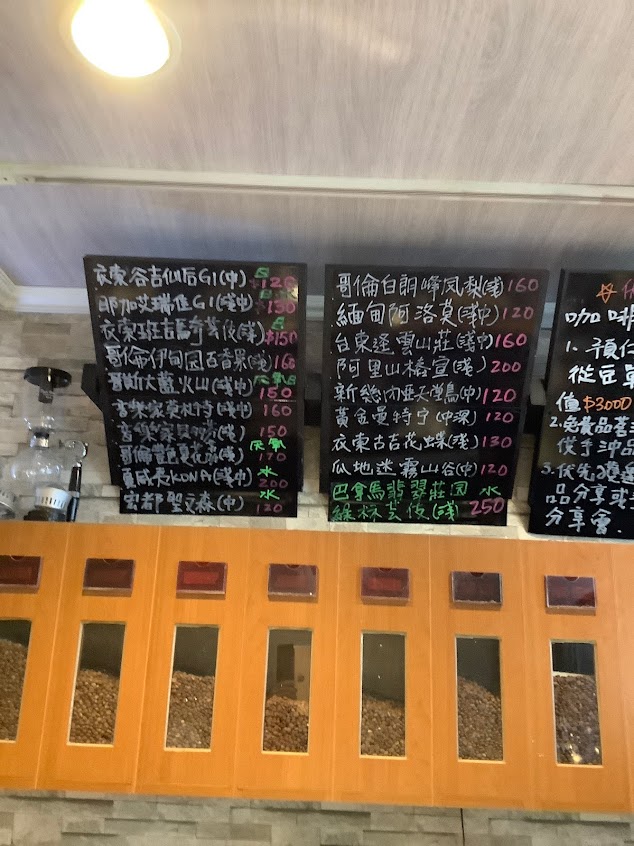 衣索谷吉仙后G1(中) 日 120
耶加艾瑞佳G1(淺中) 日 水 $150
衣索班吉瑪芸伎(淺) 日 $150
哥倫伊甸园百香果(淺) 160
哥斯大黎火山(淺中) 厌氧日 150
音樂家莫札特(淺中) 160
音樂家貝(淺) 150
哥倫(淺) 厌氧 170
夏威夷KONA(淺中) 水 200
宏都聖文森(中) 水 120
哥倫白朗峰凤梨(淺) 160
緬甸阿洛莫(淺中) 120
台東逐雲山莊(淺中) 160
阿里山椿萱(淺) 200
新幾內天堂鳥(中) 120
黃金曼特宁(中深) 120
衣索古吉花蝶(淺) 130
瓜地迷霧山谷(中) 120
巴拿馬翡翠莊园 水
綠标芸伎(淺) 250
咖啡
1.預仁
從豆單
值$3000
2.免費品
伎手沖品
3.优先
品分享或
分享會